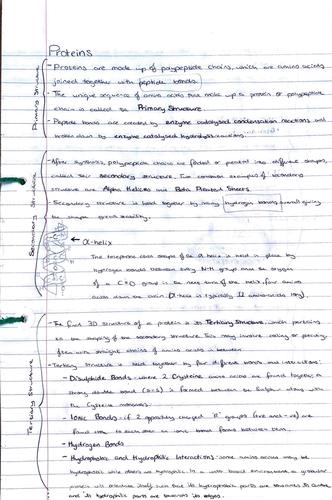 Proteins
Primary Structure
- Proteins are made up of polypeptide chains, which are amino acids
joined together with peptide bonds.
- The unique sequence of amino acids that make up a protein or polypeptide
chain is called the Primary Structure.
- Peptide bonds are created by enzyme catalysed condensation reactions and
broken down by enzyme catalysed hydrolysis reactions.
Secondary Structure
- After synthesis, polypeptide chains are folded or pleated into different shapes,
called their secondary structure. Two common examples of secondary
structure are Alpha Helices and Beta Pleated Sheets.
- Secondary structure is held together by many hydrogen bonds, overall giving
the shape great stability.
← α-helix
The shape of the α helix is held in place by
hydrogen bonds between every NH group and the oxygen
of a C=O group in the next turn of the helix, four amino
acids down the chain (α helix is typically 11 amino acids long).
Tertiary Structure
- The final 3D structure of a protein is its Tertiary Structure, which pertains
to the shaping of the secondary structure. This may involve coiling or pleating,
often with straight chains of amino acids in between.
- Tertiary structure is held together by four different bonds and interactions:
- Disulphide Bonds - where 2 Cysteine amino acids are found together, a
strong double bond (S=S) is formed between the Sulphur atoms with
the Cysteine monomers.
- Ionic Bonds - if 2 oppositely charged 'R' groups (+ve and -ve) are
found close to each other an ionic bond forms between them.
- Hydrogen Bonds
- Hydrophobic and Hydrophilic Interactions: some amino acids may be
hydrophobic while others are hydrophilic. In a water based environment a globular
protein will orientate itself such that its hydrophobic parts are towards its centre
and its hydrophilic parts are towards its edges.